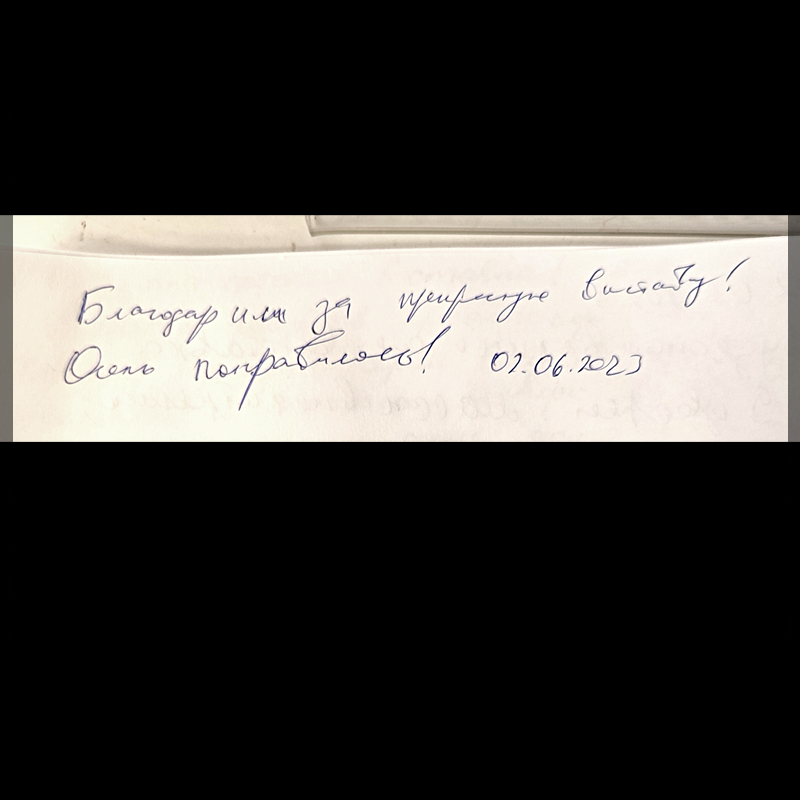 Благодарим за прекрасную выставку!
Очень понравилось! 02.06.2023